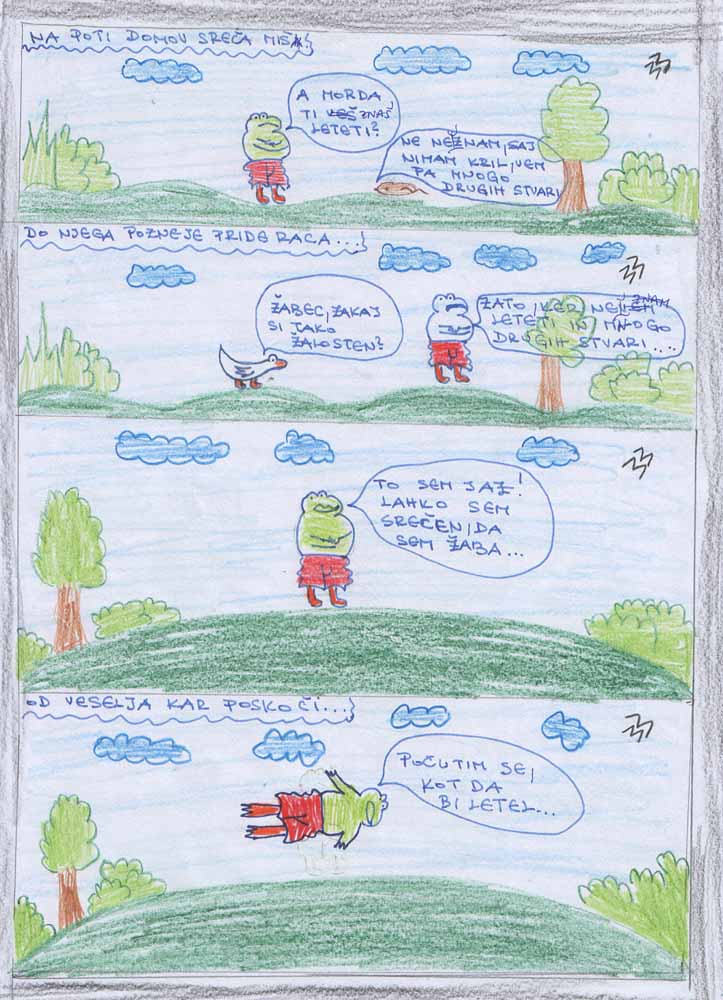 NA POTI DOMOV SREČA MIŠ
A MORDA
TI VEŠ ZNAŠ
LETETI?
NE NE ZNAM, SAJ
NIMAM KRIL, VEM
PA MNOGO
DRUGIH STVARI
DO NJEGA POZNEJE PRIDE RACA...
ŽABEC, ZAKAJ
SI TAKO
ŽALOSTEN?
ZATO, KER NE ZNAM
LETETI IN MNOGO
DRUGIH STVARI....
TO SEM JAZ!
LAHKO SEM
SREČEN, DA
SEM ŽABA...
OD VESELJA KAR POSKOČI...
POČUTIM SE,
KOT DA
BI LETEL...